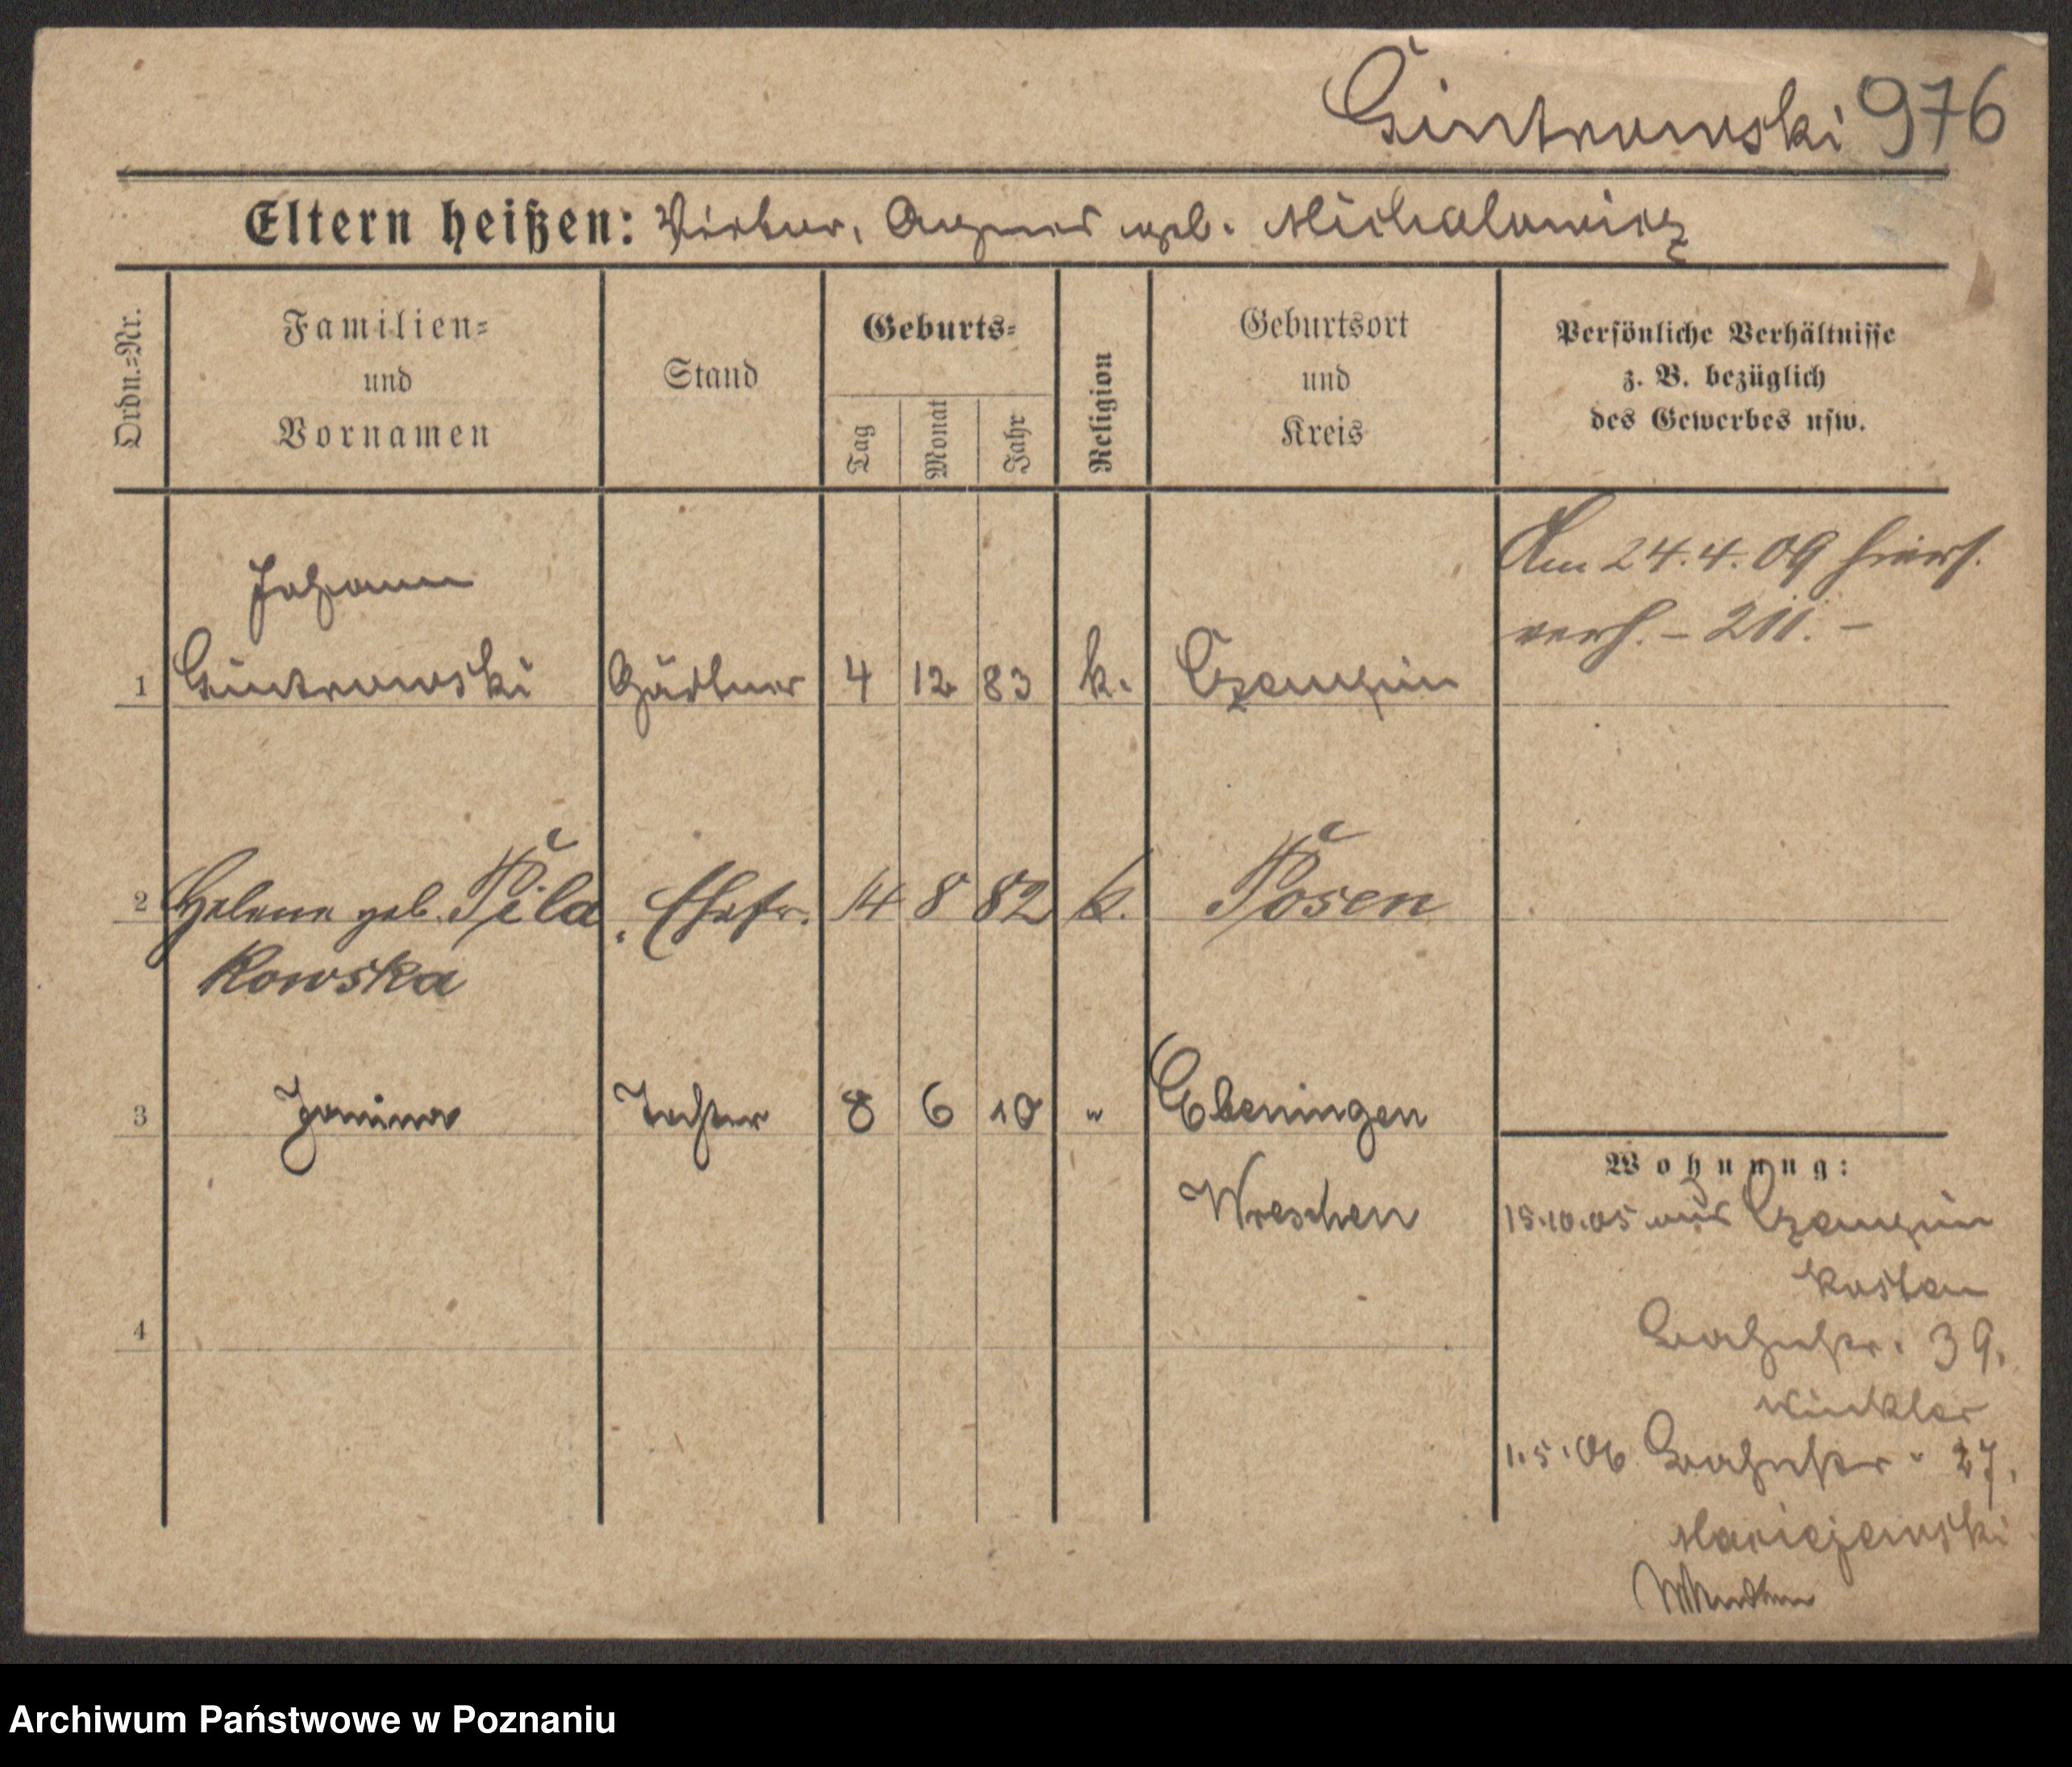 Cintrowski 976
Eltern heißen: Victor, Agnes geb. Michalowicz
Ordn.=Nr.
Familien=
und
Vornamen
Stand
Geburts=
Tag
Monat
Jahr
Religion
Geburtsort
und
Kreis
Persönliche Verhältnisse
z. B. bezüglich
des Gewerbes usw.
Am 24.4.09 hiers.
verh. – 211. –
Johann
1 Cintrowski Gärtner 4 12 83 k. Czempin
2 Helene geb. Pila Ehefr. 14 8 82 k. Posen
kowska
3 Janina Tochter 8 6 10 " Ebeningen
Wreschen
Wohnung:
15.10.05 aus Czempin
Kosten
Bahnstr. 39.
Winkler
1.5.06 Bahnstr. 27.
Maciejewski
4
Archiwum Państwowe w Poznaniu